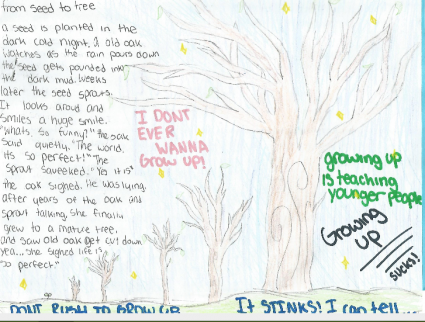 from seed to tree
a seed is planted in the
dark cold night. 1 old oak
watches as the rain pours down
the seed gets pounded into
the dark mud. Weeks
later the seed sprouts.
It looks around and
smiles a huge smile.
"Whats so funny?" the oak
said quietly. "The world,
its so perfect!" The
sprout saueeked. "Yes it is"
the oak sighed. He was lying.
after years of the oak and
sprout talking, she finally
grew to a mature tree.
and saw old oak get cut down
yea... she sighed life is
so perfect."
I DONT
EVER
WANNA
Grow UP!
growing up
is teaching
younger people
Growing
UP
sucks!
DONT RUSH TO GROW UP
It STINKS! I can tell...